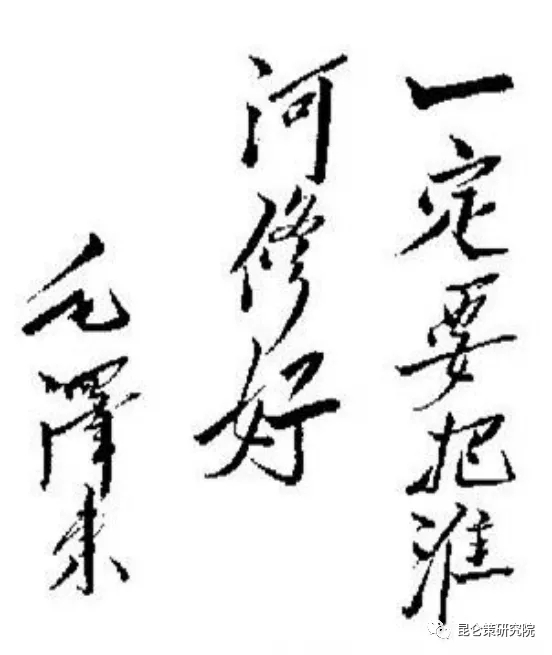 一定要把淮
河修好
毛澤东
昆仑策研究院